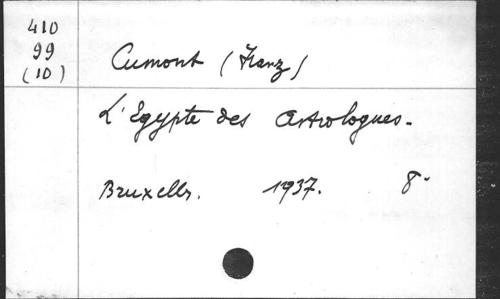 410
99
(10)
Cumont (Franz)
L'Egypte des Astrologues.
Bruxelles. 1937. 8°